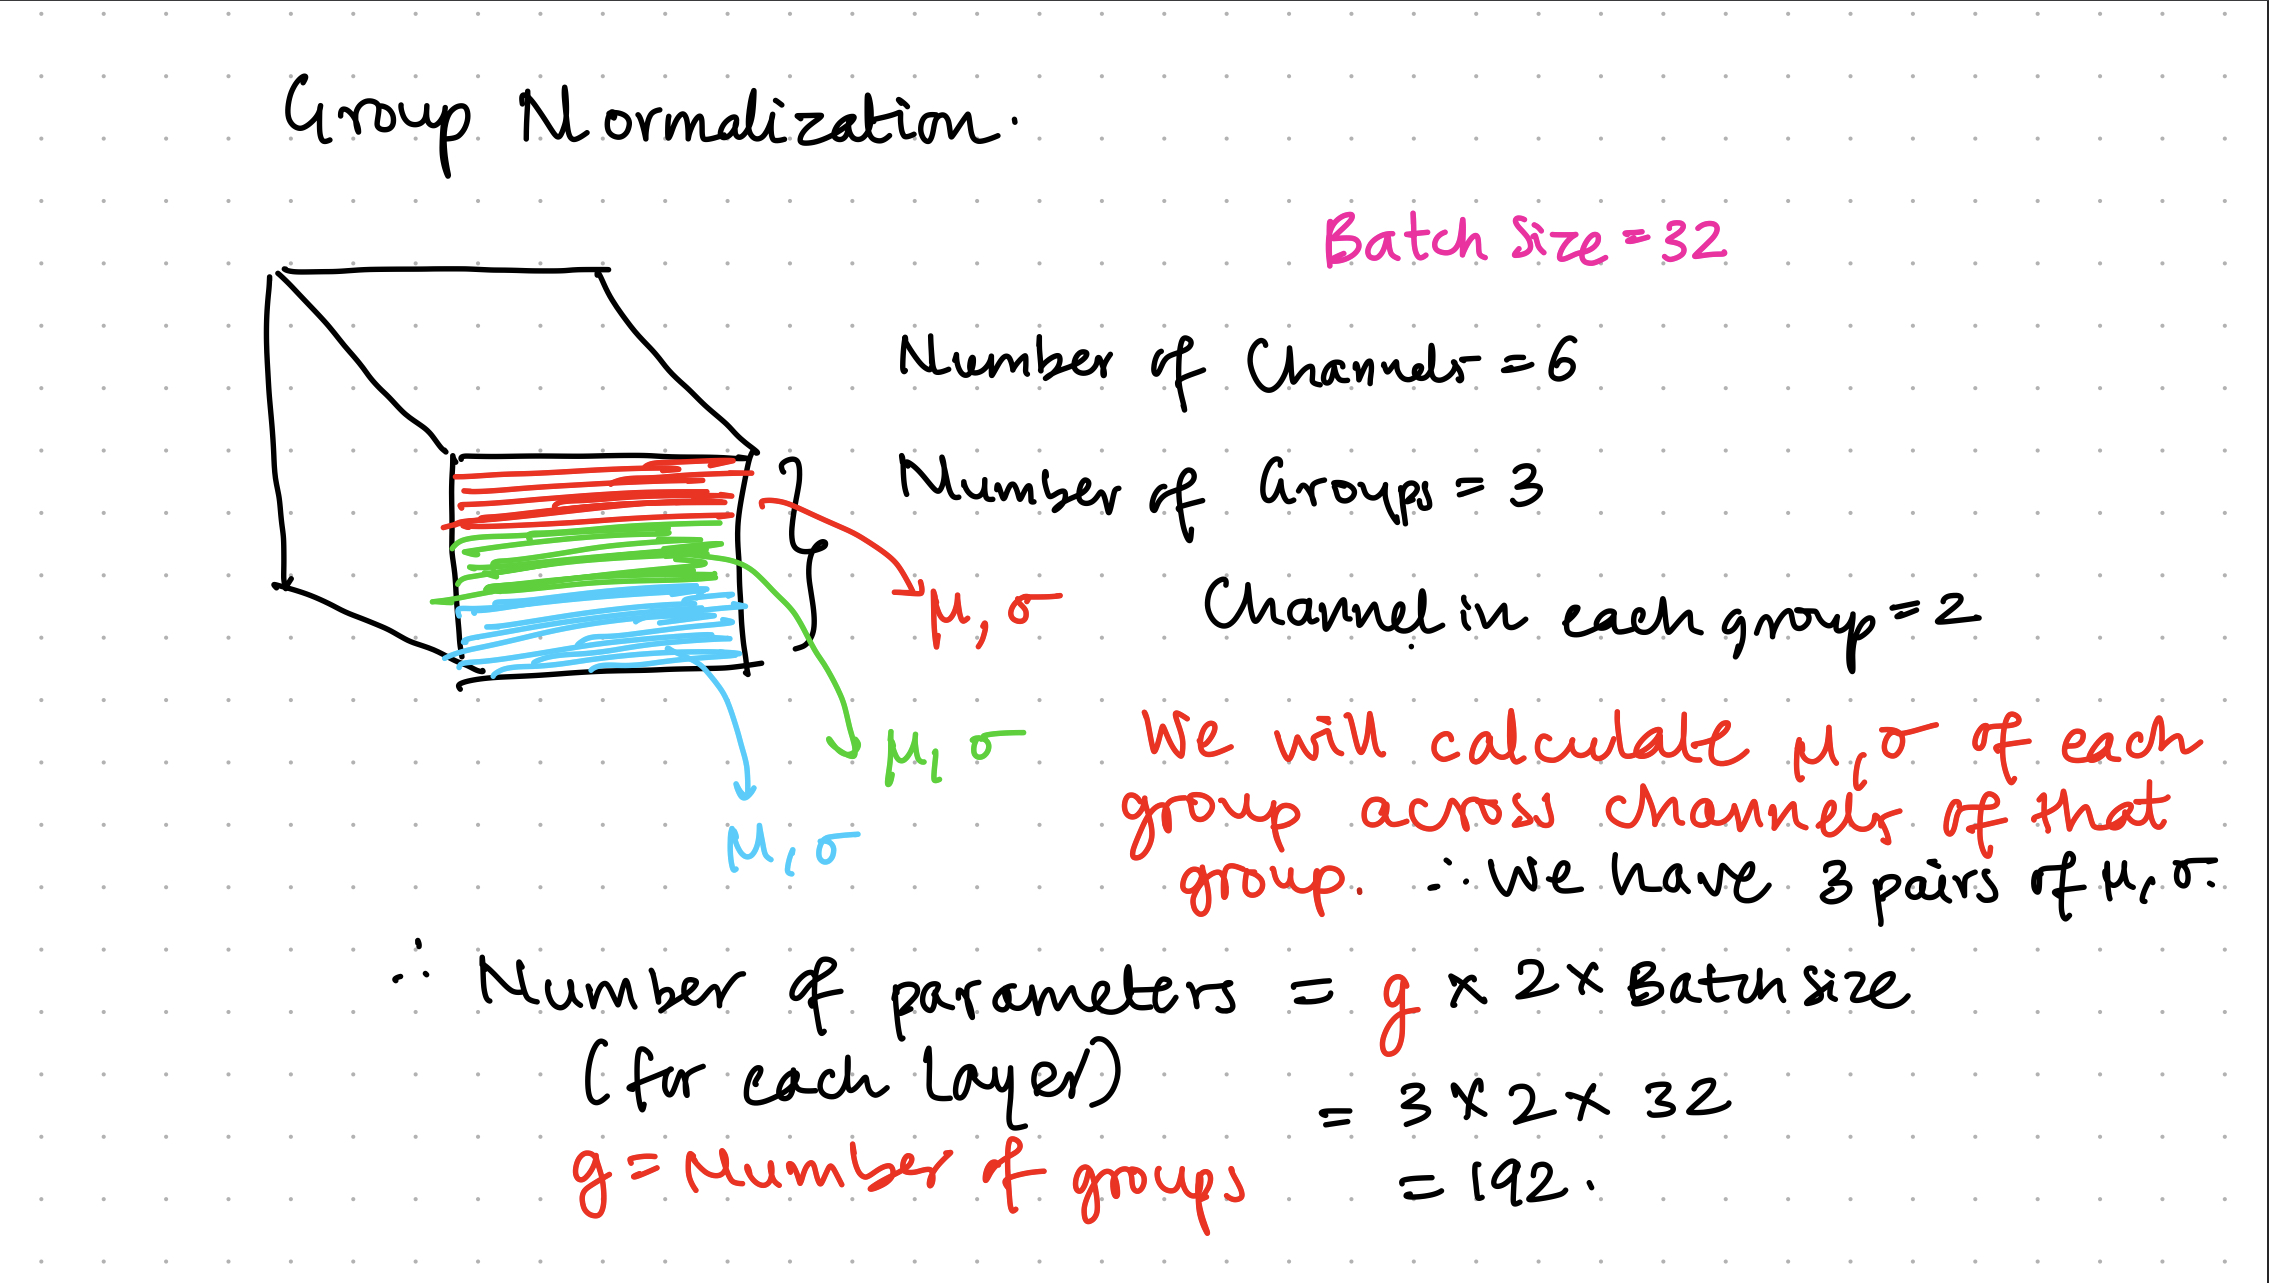 Group Normalization.
Batch Size = 32
Number of Channels = 6
Number of Groups = 3
μ, σ
Channel in each group = 2
μ, σ
We will calculate μ, σ of each
group across channels of that
μ, σ
group. ∴ We have 3 pairs of μ, σ.
∴ Number of parameters = g × 2 × Batch size
(for each layer)
= 3 × 2 × 32
g = Number of groups
= 192.